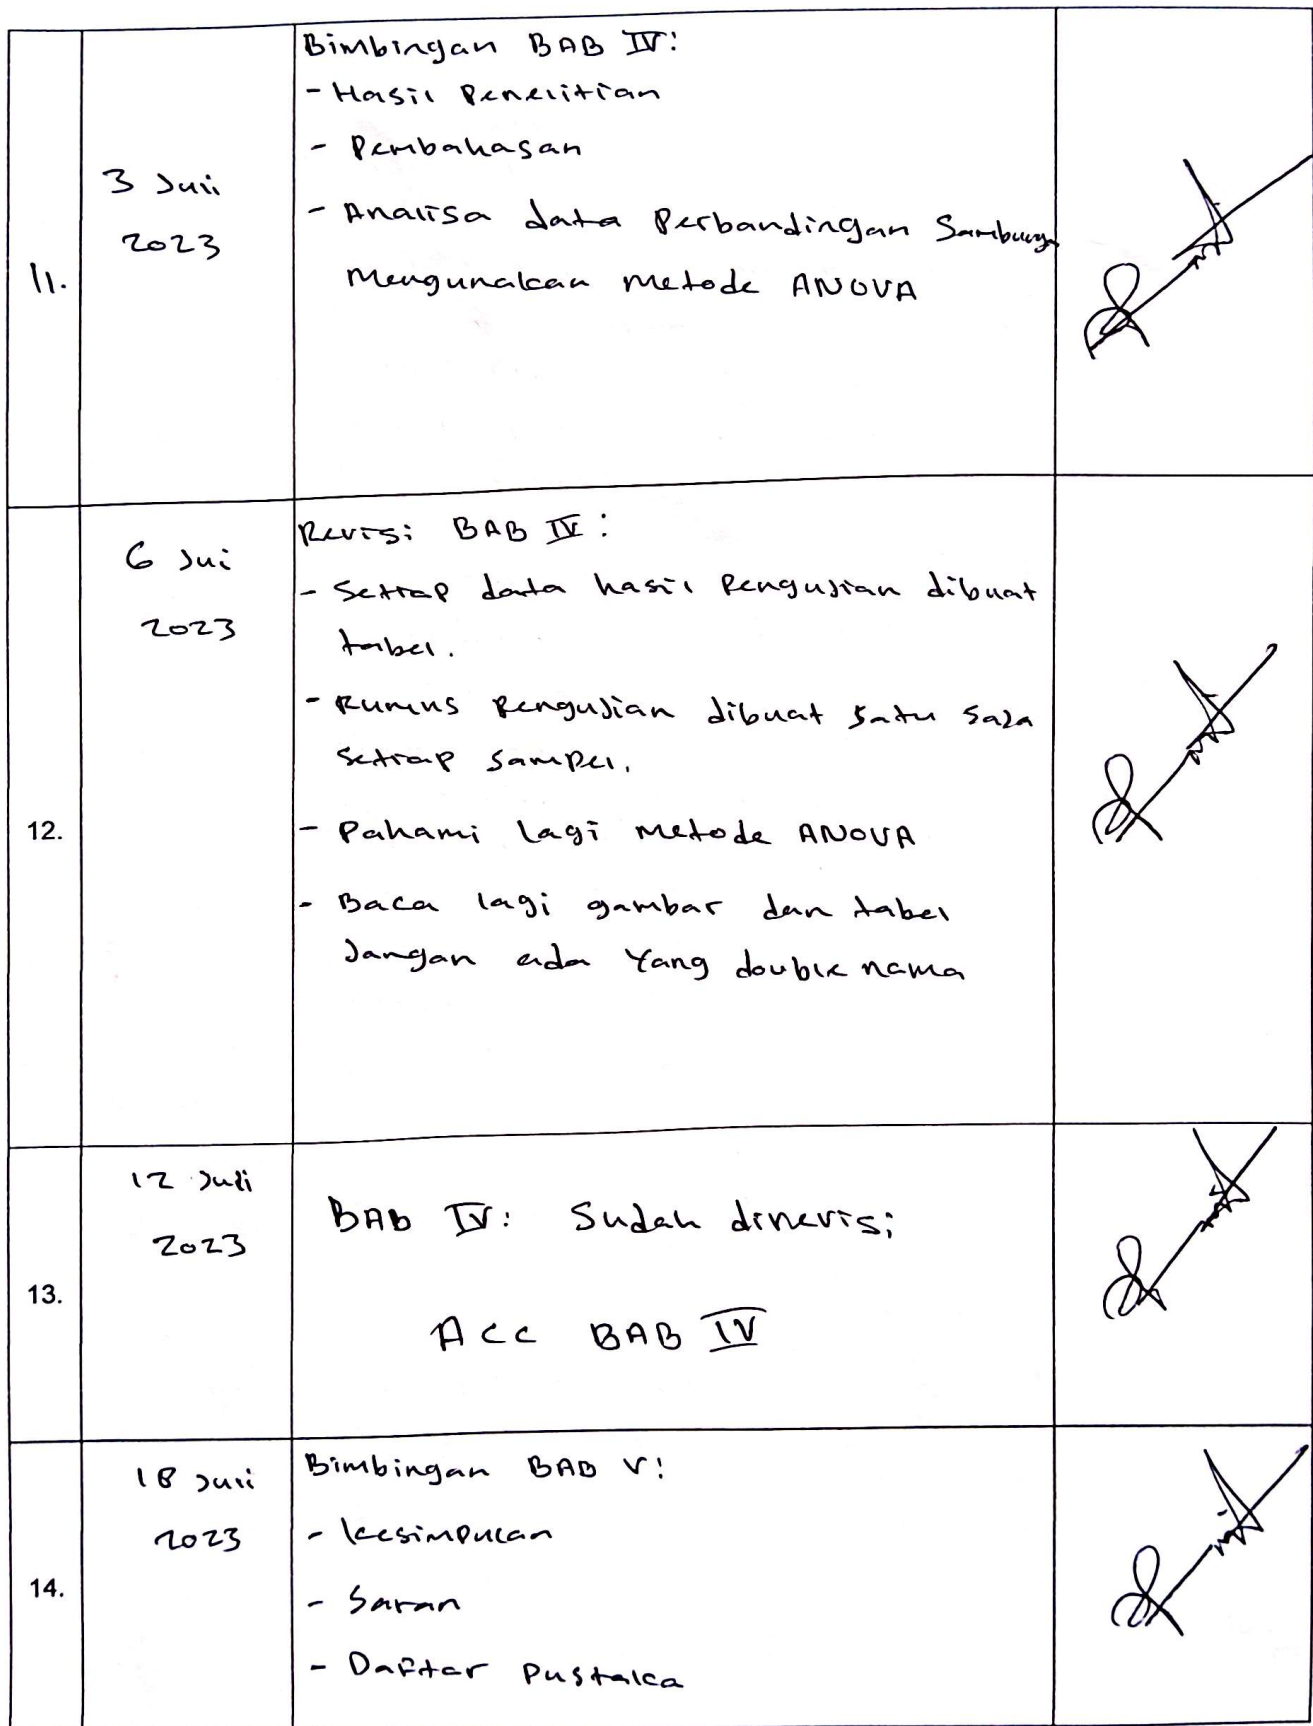 11.
3 Juli
2023
Bimbingan BAB IV:
- Hasil Penelitian
- Pembahasan
- Analisa data Perbandingan
Mengunakan metode ANOVA
12.
6 Jui
2023
Revisi BAB IV:
- Setiap data hasil Pengujian dibuat
tabel.
- Rumus Pengujian dibuat satu saja
setiap sampel.
- Pahami lagi metode ANOVA
- Baca lagi gambar dan tabel
Jangan ada Yang double nama
13.
12 Juli
2023
BAB IV: Sudah direvisi
ACC BAB IV
14.
18 Juli
2023
Bimbingan BAB V:
- Kesimpulan
- Saran
- Daftar Pustaka